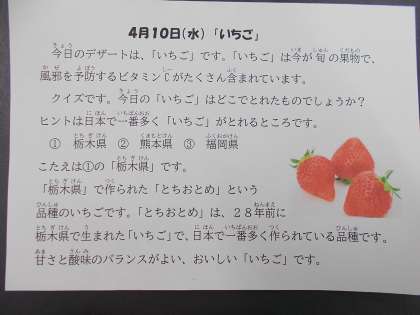 4月10日(水)「いちご」
今日のデザートは、「いちご」です。「いちご」は今が旬の果物で、
風邪を予防するビタミンCがたくさん含まれています。
クイズです。今日の「いちご」はどこでとれたものでしょうか?
ヒントは日本で一番多く「いちご」がとれるところです。
① 栃木県 ② 熊本県 ③ 福岡県
こたえは①の「栃木県」です。
「栃木県」で作られた「とちおとめ」という
品種のいちごです。「とちおとめ」は、28年前に
栃木県で生まれた「いちご」で、日本で一番多く作られている品種です。
甘さと酸味のバランスがよい、おいしい「いちご」です。